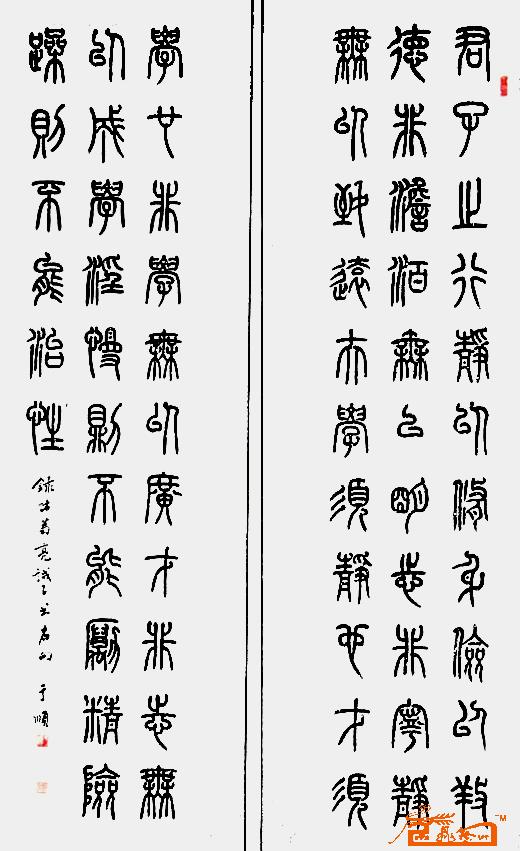 君子之行靜以修身儉以養
德非澹泊無以明志非寧靜
無以致遠夫學須靜也才須
學也非學無以廣才非志無
以成學淫慢則不能勵精險
躁則不能治性
錄諸葛亮誡子書